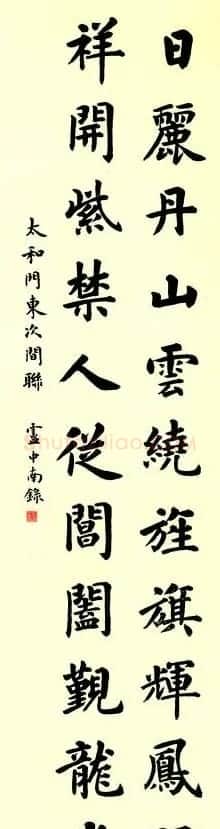 日麗丹山雲繞旌旗輝鳳
祥開紫禁人從閶闔覲龍
太和門東次間聯
盧中南錄